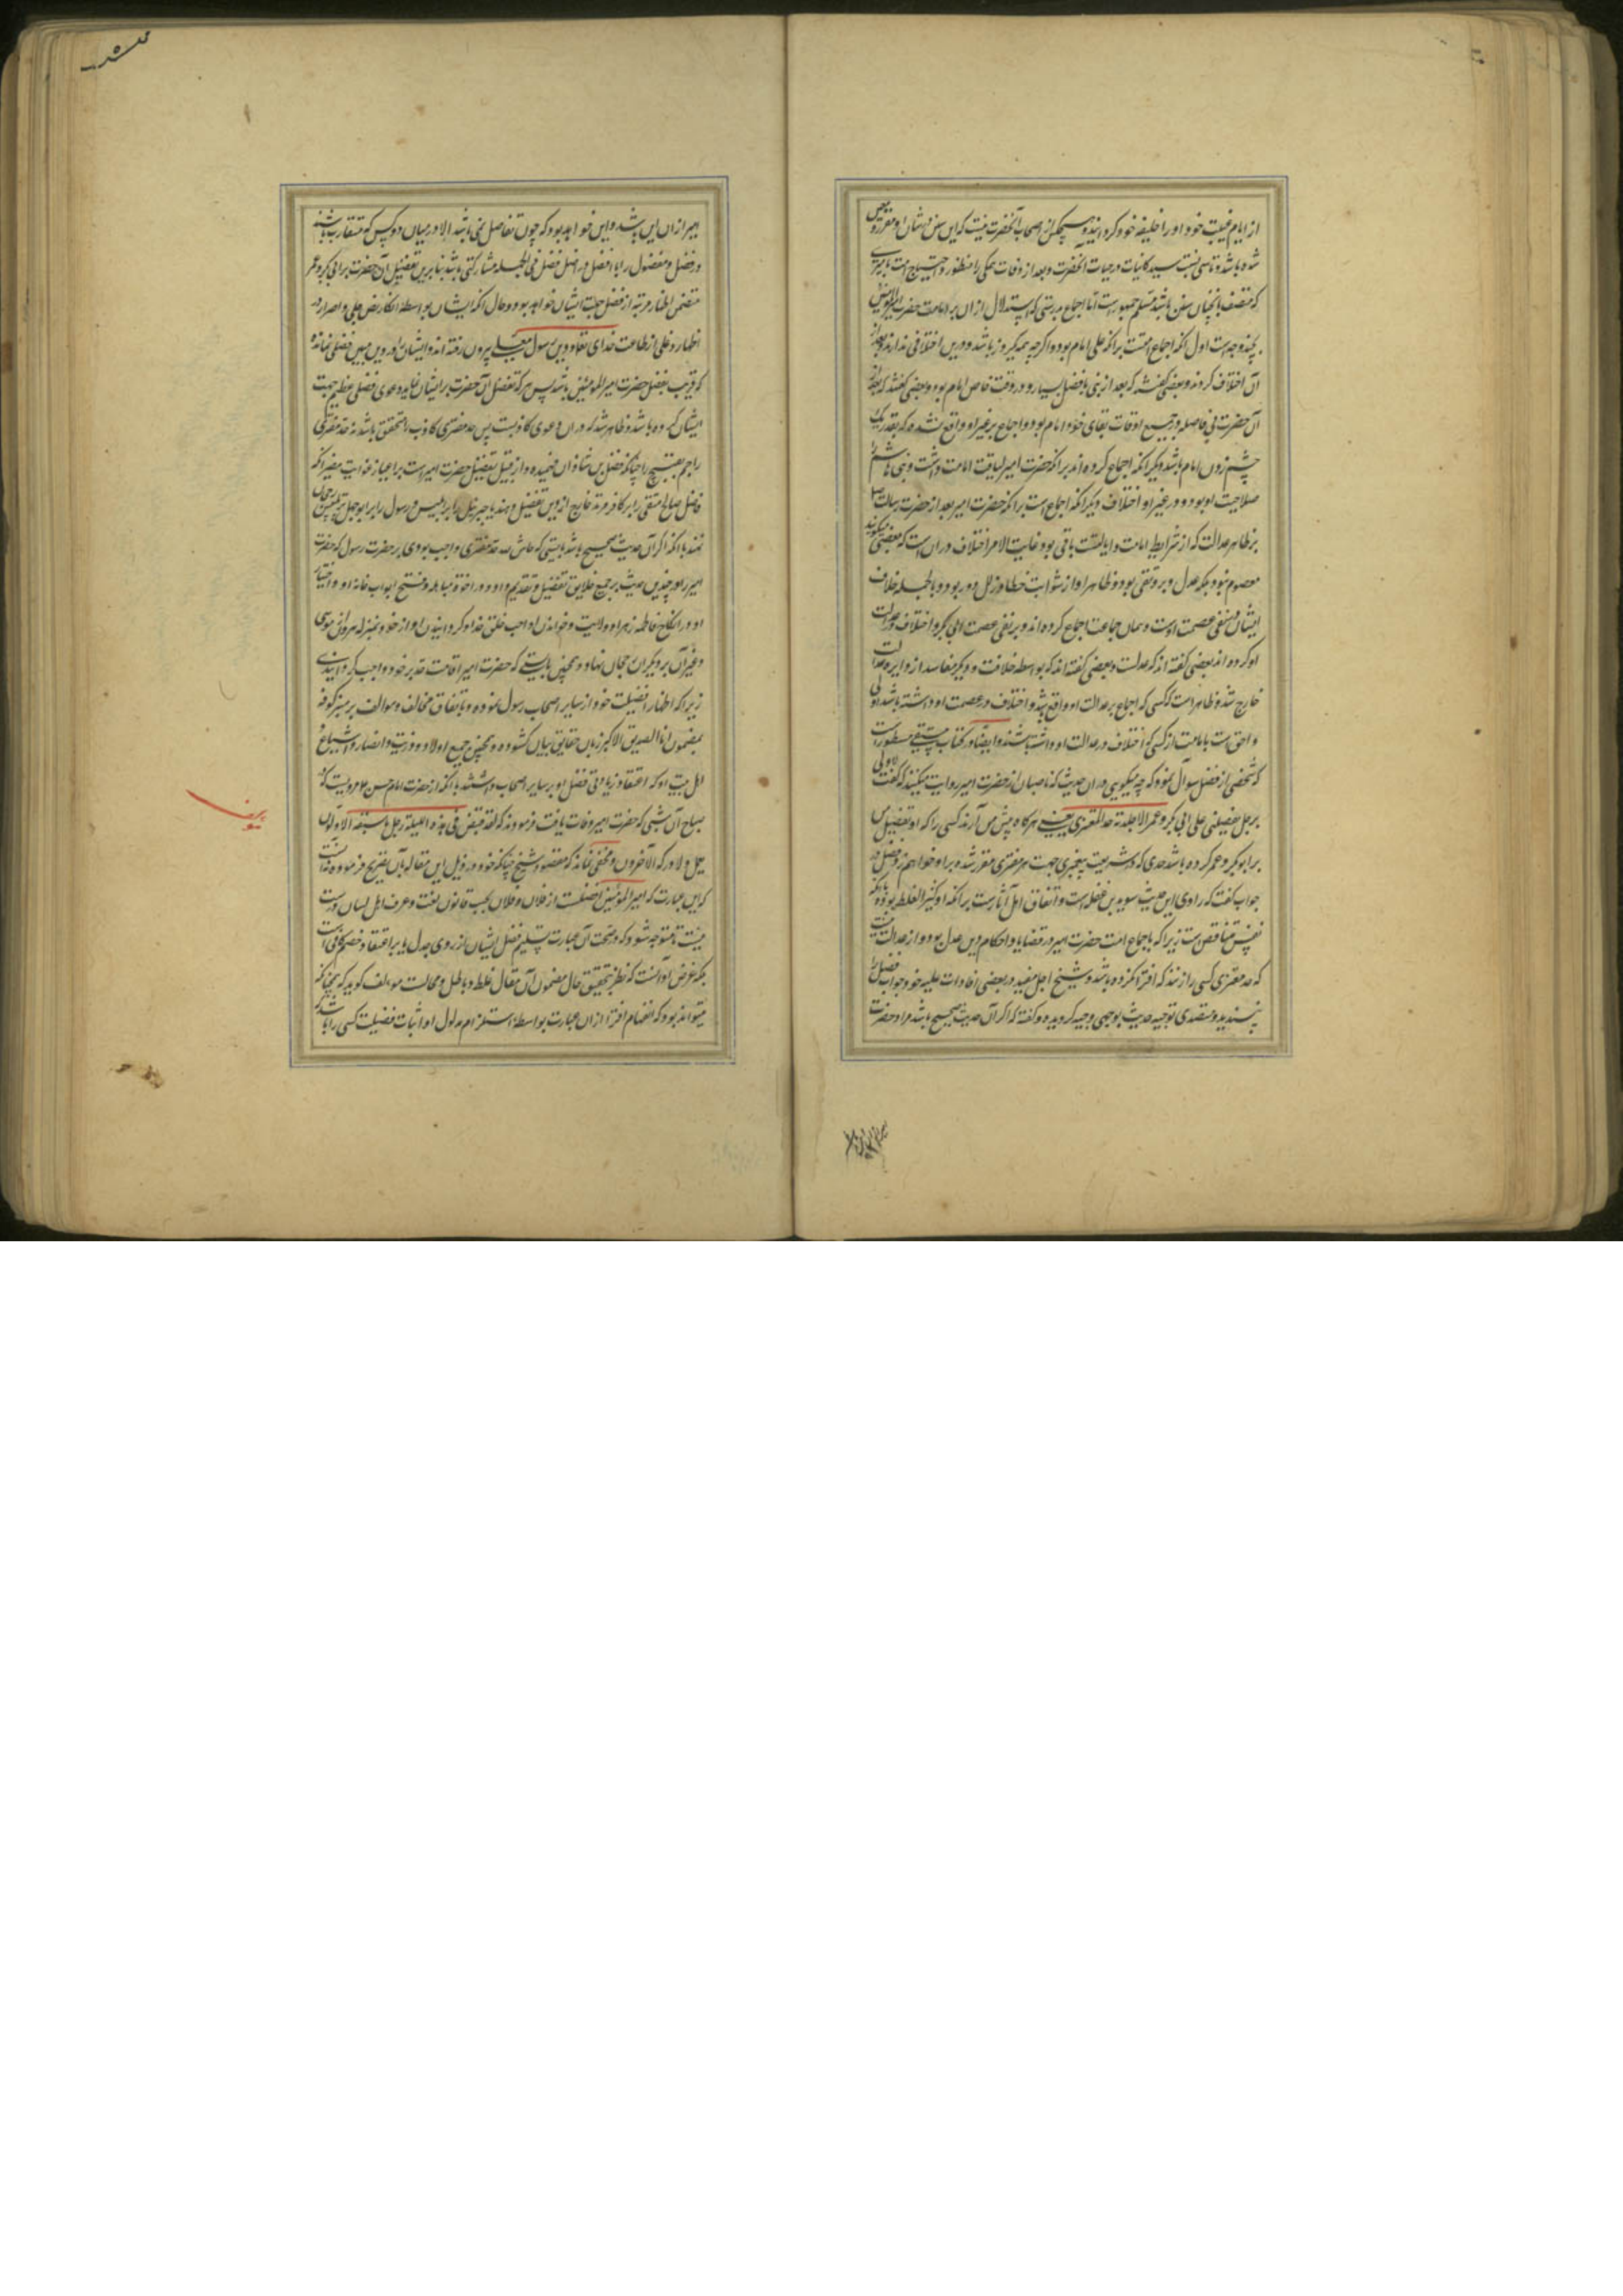 از ایام غیبت خود او را خلیفه خود گردانیده و هیچکس از اصحاب آنحضرت نیست که این سنن در شان او مقرر
شده باشد و تاسی بسنت سید کائنات در حیات آنحضرت و بعد از وفات همگی را منظور و احتیاج امت بامیری
که متصف بآنچنان سنن باشد مسلم جمهورست اما اجماع مردمی که استدلال از ان بر امامت حضرت امیرالمؤمنین
بچند وجه است اول آنکه اجماع امتست برانکه علی امام بود و اگرچه همه یکروز باشد و درین اختلافی ندارند و بعد از
آن اختلاف کردند و بعضی گفتند که بعد از نبی بافضل بسیار و در وقت خاص امام بود و بعضی گفتند که بعد از
آن حضرت بی فاصله و در جمیع اوقات بقای خود امام بود و اجماع بر غیر او واقع نشده که بقدر یک
چشم زدن امام باشد دیگر آنکه اجماع کرده اند برانکه حضرت امیر لیاقت امامت داشت و بنی هاشم را
صلاحیت او بود و در غیر او اختلاف دیگر آنکه اجماع است برانکه حضرت امیر بعد از حضرت رسالت
بر ظاهر عدالت که از شرایط امامت و ایالتست باقی بود غایت الامر اختلاف در ان است که بعضی میگویند
معصوم نبود بلکه عدل و بر و تقی بود و ظاهر او از شوائب خطا و زلل دور بود و بالجمله خلاف
ایشان در نفی عصمت اوست و همان جماعت اجماع کرده اند بر نفی عصمت ابی بکر و اختلاف در عدالت
او کرده اند بعضی گفته اند که عدلست و بعضی گفته اند که بواسطه خلافت و دیگر مفاسد از دایره عدالت
خارج شد و ظاهرست که کسی که اجماع بر عدالت او واقع باشد و اختلاف در عصمت او داشته باشد اولی
و احق است بامامت از کسی که اختلاف در عدالت او داشته باشند و ایضا در کتاب مسطورست
که شخصی از فضل سوآل نمود که چه میگویی در ان حدیث که ناصبان از حضرت امیر روایت میکنند که گفت لا اوتی
برجل یفضلنی علی ابی بکر و عمر الا جلدته حد المفتری یعنی هرگاه پیش من آرند کسی را که او تفضیل من
بر ابوبکر و عمر کرده باشد حدی که در شریعت پیغمبری جهت هر مفتری مقرر شده بر او خواهم زد فضل در
جواب گفت که راوی این حدیث سوید بن غفله است و اتفاق اهل آثارست برانکه او کثیر الغلط بوده با آنکه
نفس متناقص ست زیرا که باجماع امت حضرت امیر در قضایا و احکام دین عدل بود و از عدالت نیست
که حد مفتری کسی را زند که افترا نکرده باشد و شیخ اجل مفید در بعضی افادات علیه خود جواب فضل را
پسندیده و متصدی توجیه حدیث بوجهی وجیه گردیده و گفته که اگر آن حدیث صحیح باشد مراد حضرت
امیر از ان این باشد و این خواهد بود که چون تفاضل نمی باشد الا در میان دو کس که متقارب باشند
در فضل و مفضول را با افضل در اصل فضل فی الجمله مشارکتی باشد بنابرین تفضیل آن حضرت بر ابی بکر و عمر
متضمن اظهار مرتبه از فضل جهت ایشان خواهد بود و حال آنکه ایشان بواسطه انکار نص جلی و اصرار در
از طاعت خدای تعالی و دین رسول بیرون رفته اند و ایشان را در دین مبین فضلی نمانده
که قریب بفضل حضرت امیرالمومنین باشد پس هر که تفضل آن حضرت بر ایشان نماید دعوی فضلی عظیم جهت
ایشان کرده باشد و ظاهر شد که در ان دعوی کاذبست پس حد مفتری کاذب را متحقق باشد نه حد مفتری
راجم بقبیح را چنانکه فضل بن شاذان فهمیده و از قبیل تفضیل حضرت امیرست
فاضل صالح متقی را بر کافر مرتد خارج از دین تفضیل دهند یا جبرئیل را بر ابلیس و رسول را بر ابوجهل
نمند با آنکه اگر آن حدیث صحیح باشد بایستی که حاش لله حد مفتری واجب بودی بر حضرت رسول که حضرت
امیر را در چندین حدیث بر جمیع خلایق تفضیل و تقدیم داد و در اخوة مباهله و فتح ابواب خانه او و اختیار
او در انکاح فاطمه زهرا و ولایت و خواندن او احب خلق خدا و گردانیدن او از خود بمنزله هرون از موسی
و غیر آن بر دیگران رجحان نهاد و همچنین بایستی که حضرت امیر اقامت حد بر خود واجب گردانیدی
زیرا که اظهار افضلیت خود از سایر اصحاب رسول نموده و باتفاق مخالف و موالف بر منبر کوفه
بمضمون انا الصدیق الاکبر زبان حقایق بیان گشوده و همچنین جمیع اولاد و ذریت و انصار و اشیاع
اهل بیت او که اعتقاد زیادتی فضل او بر سایر اصحاب داشتند با آنکه از حضرت امام حسن ع مرویست که
صباح آن شبی که حضرت امیر وفات یافت فرمودند که لقد قبض فی هذه اللیلة رجل ما سبقه الاولون
بعمل ولا درکه الآخرون و مخفی نماند که مقصود شیخ چنانکه خود در ذیل این مقاله بآن تصریح فرموده نه آنست
که این عبارت که امیرالمؤمنین افضلست از فلان و فلان بحسب قانون لغت و عرف اهل لسان درست
نیست تا متوجه شود که صحت آن عبارت بتسلیم فضل ایشان از روی جدل یا بر اعتقاد خصم کافی است
بلکه غرض او آنست که نظر بتحقیق حال مضمون آن مقال غلط و باطل و محالست مولف گوید که همچنانکه
میتواند بود که انفهام افترا از ان عبارت بواسطه استلزام مدلول او اثبات فضیلت کسی را باشد که